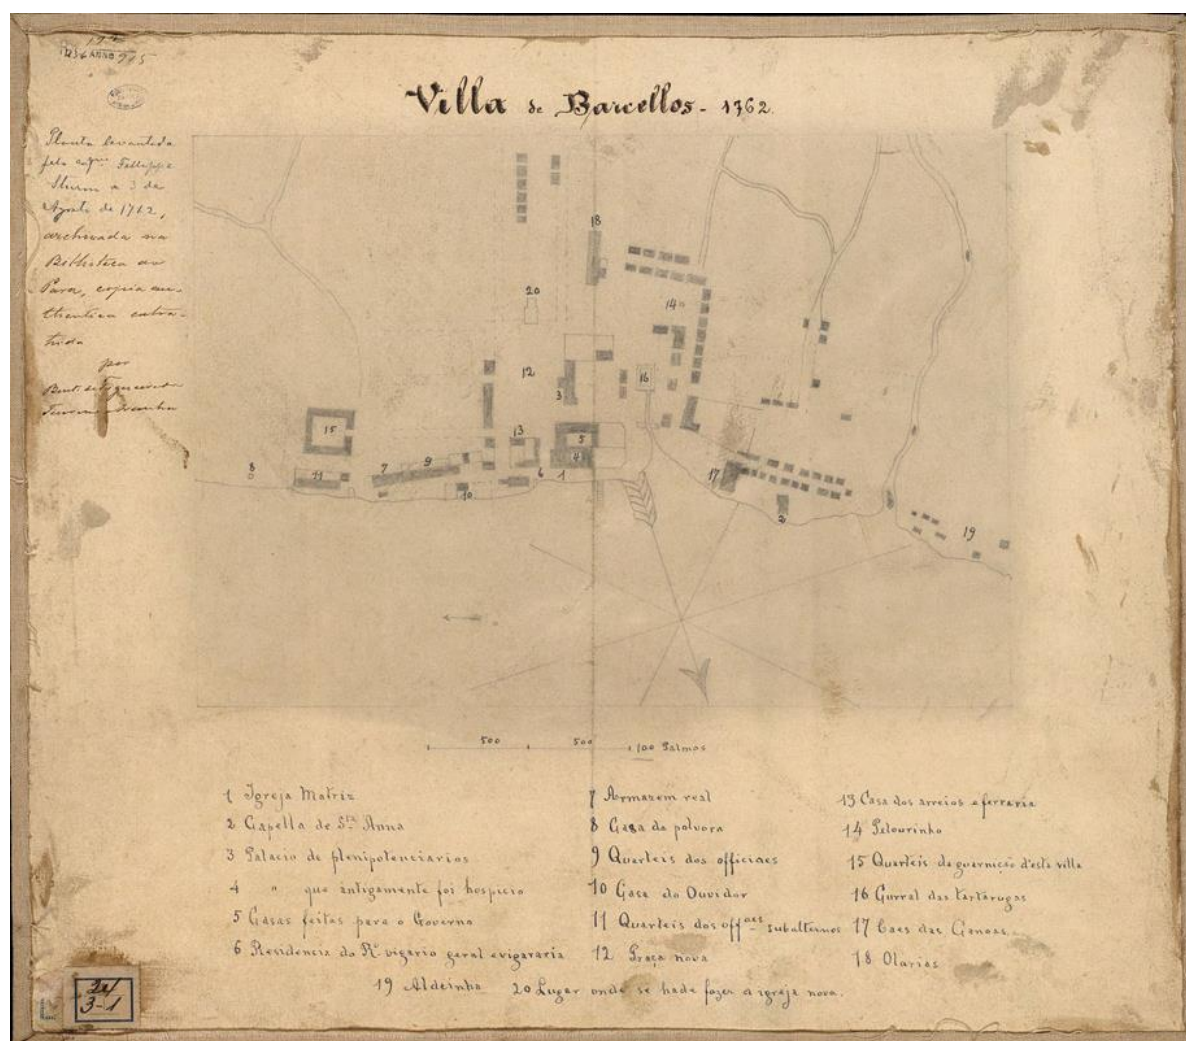 Villa de Barcellos - 1762.
Planta levantada
pelo capm Fellippe
Sturm a 3 de
Agosto de 1762,
archivada na
Bibliotheca do
Para, copia au-
thentica extra-
hida
por
18
20
14
12
16
3
15
13
5
4
8
11
7
9
6
1
10
17
2
19
500 500 100 Palmos
1 Igreja Matriz
2 Capella de Sta Anna
3 Palacio de plenipotenciarios
4 " que antigamente foi hospicio
5 Casas feitas para o Governo
6 Residencia do Rdo vigario geral e vigararia
7 Armazem real
8 Casa da polvora
9 Quarteis dos officiaes
10 Casa do Ouvidor
11 Quarteis dos offaes subalternos
12 Praça nova
13 Casa dos arreios e ferraria
14 Pelourinho
15 Quarteis da guarnição d'esta villa
16 Curral das tartarugas
17 Caes das Canoas
18 Olarias
19 Aldeinha 20 Lugar onde se hade fazer a igreja nova.
24/
3-1